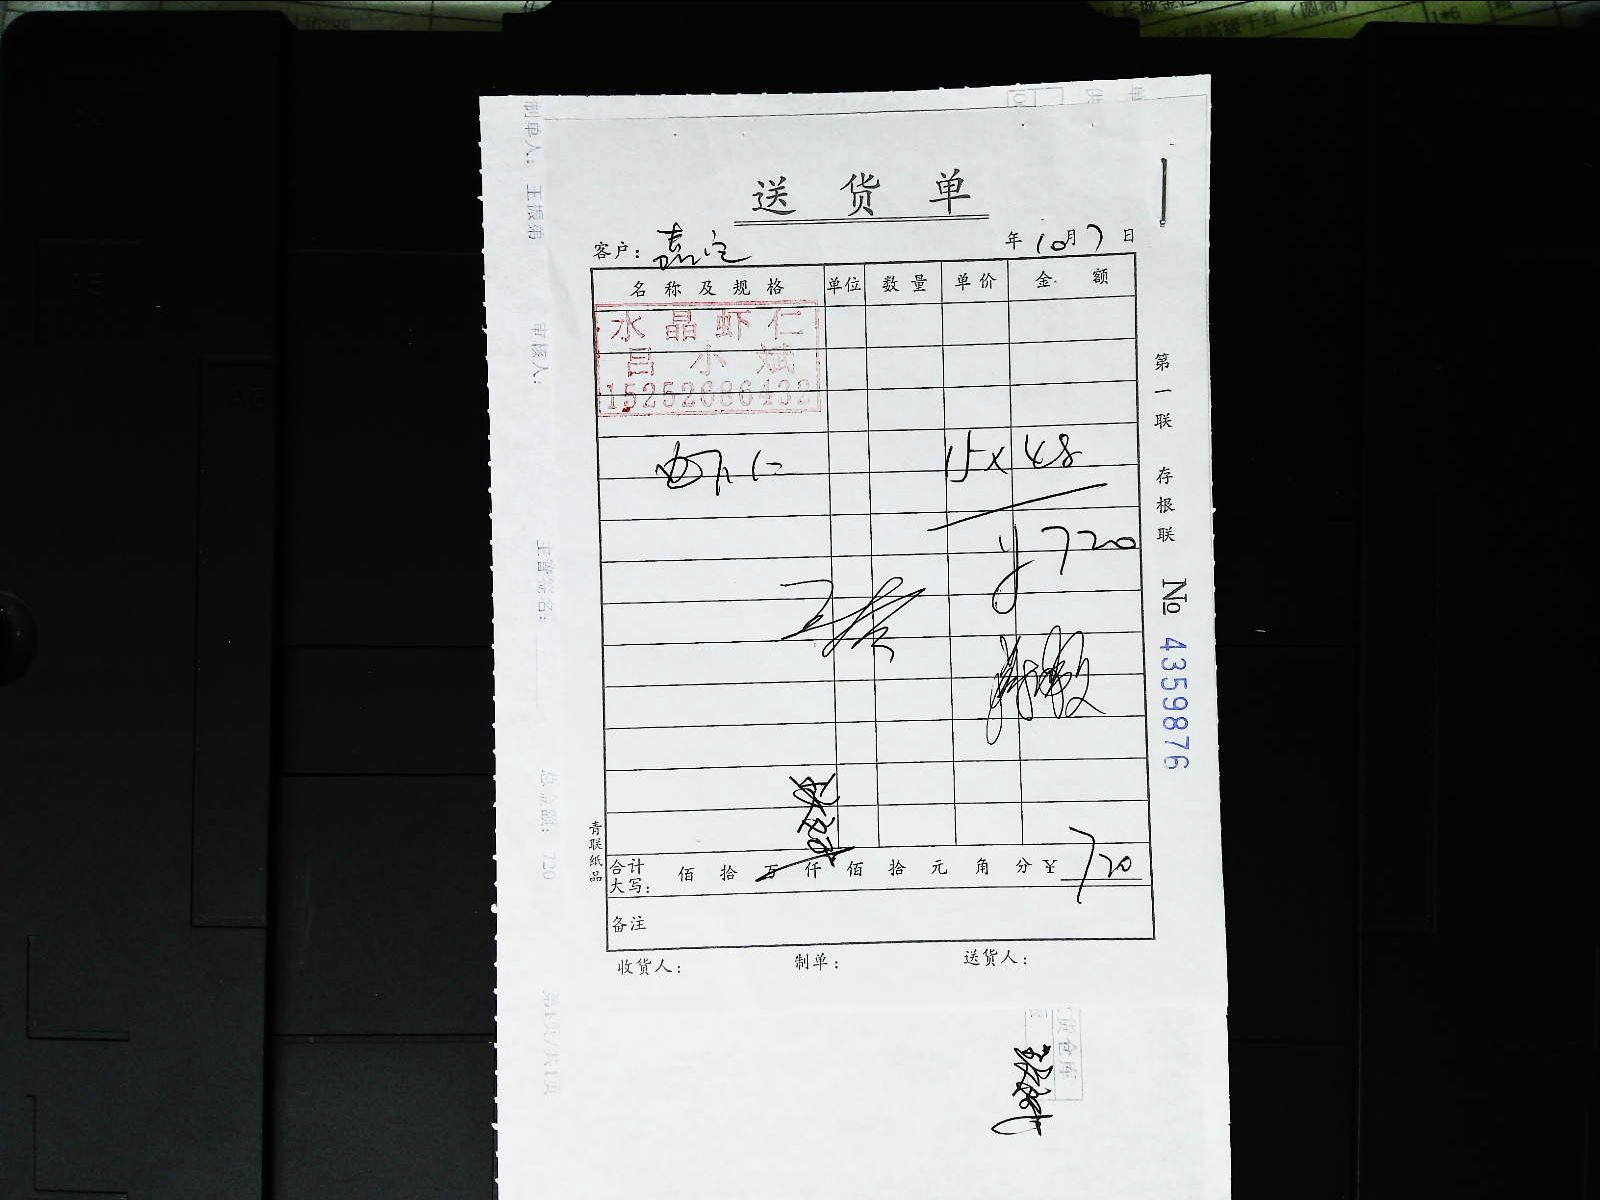 送 货 单
客户: 嘉定 年 10月 7 日
名 称 及 规 格 单位 数 量 单 价 金 额
水 晶 虾 仁
吕 小 斌
15252686432
虾仁 15×48
¥720
第一联 存根联
№ 4359876
青联纸品
合计大写: 佰 拾 万 仟 佰 拾 元 角 分 ¥ 720
备注
收货人: 制单: 送货人:
制单人: 王振弟
审核人:
主管签名:
总金额: 720
第1页/共1页